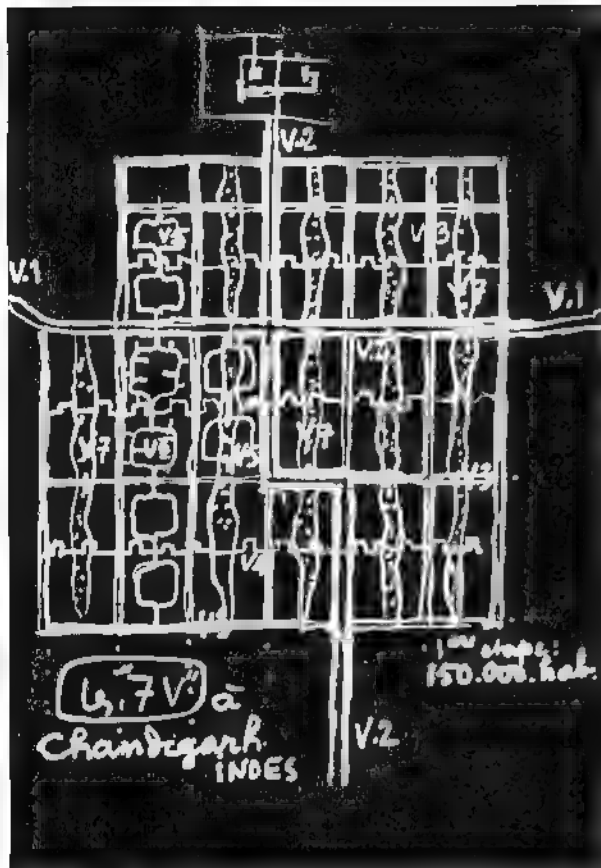 V.2
V5
V3
V.1
V7
V.1
V7
V7
V5
V3
V3
1ère étape:
150.000. hab.
les "7 V" à
Chandigarh
INDES
V.2